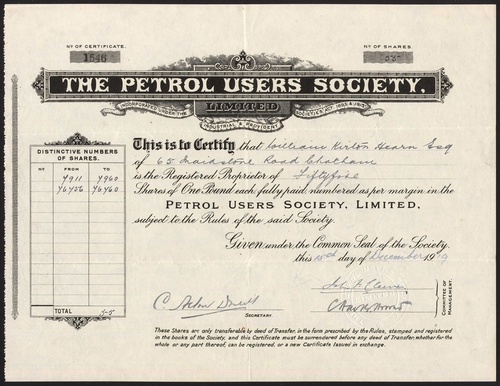 No OF CERTIFICATE.
1546
No OF SHARES.
55
THE PETROL USERS SOCIETY,
LIMITED
INCORPORATED UNDER THE
INDUSTRIAL & PROVIDENT
SOCIETIES ACT 1893 & 1913
This is to Certify that William Kirton Hearn Esq
of 65 Maidstone Road Chatham
is the Registered Proprietor of Fiftyfive
Shares of One Pound each, fully paid, numbered as per margin in the
PETROL USERS SOCIETY, LIMITED,
subject to the Rules of the said Society.
Given under the Common Seal of the Society
this day of December 1919
DISTINCTIVE NUMBERS
OF SHARES.
No FROM TO
4911 4960
46456 46460
TOTAL 55
SECRETARY
COMMITTEE OF
MANAGEMENT.
These Shares are only transferable by deed of Transfer, in the form prescribed by the Rules, stamped and registered
in the books of the Society, and this Certificate must be surrendered before any deed of Transfer, whether for the
whole or any part thereof, can be registered, or a new Certificate issued in exchange.